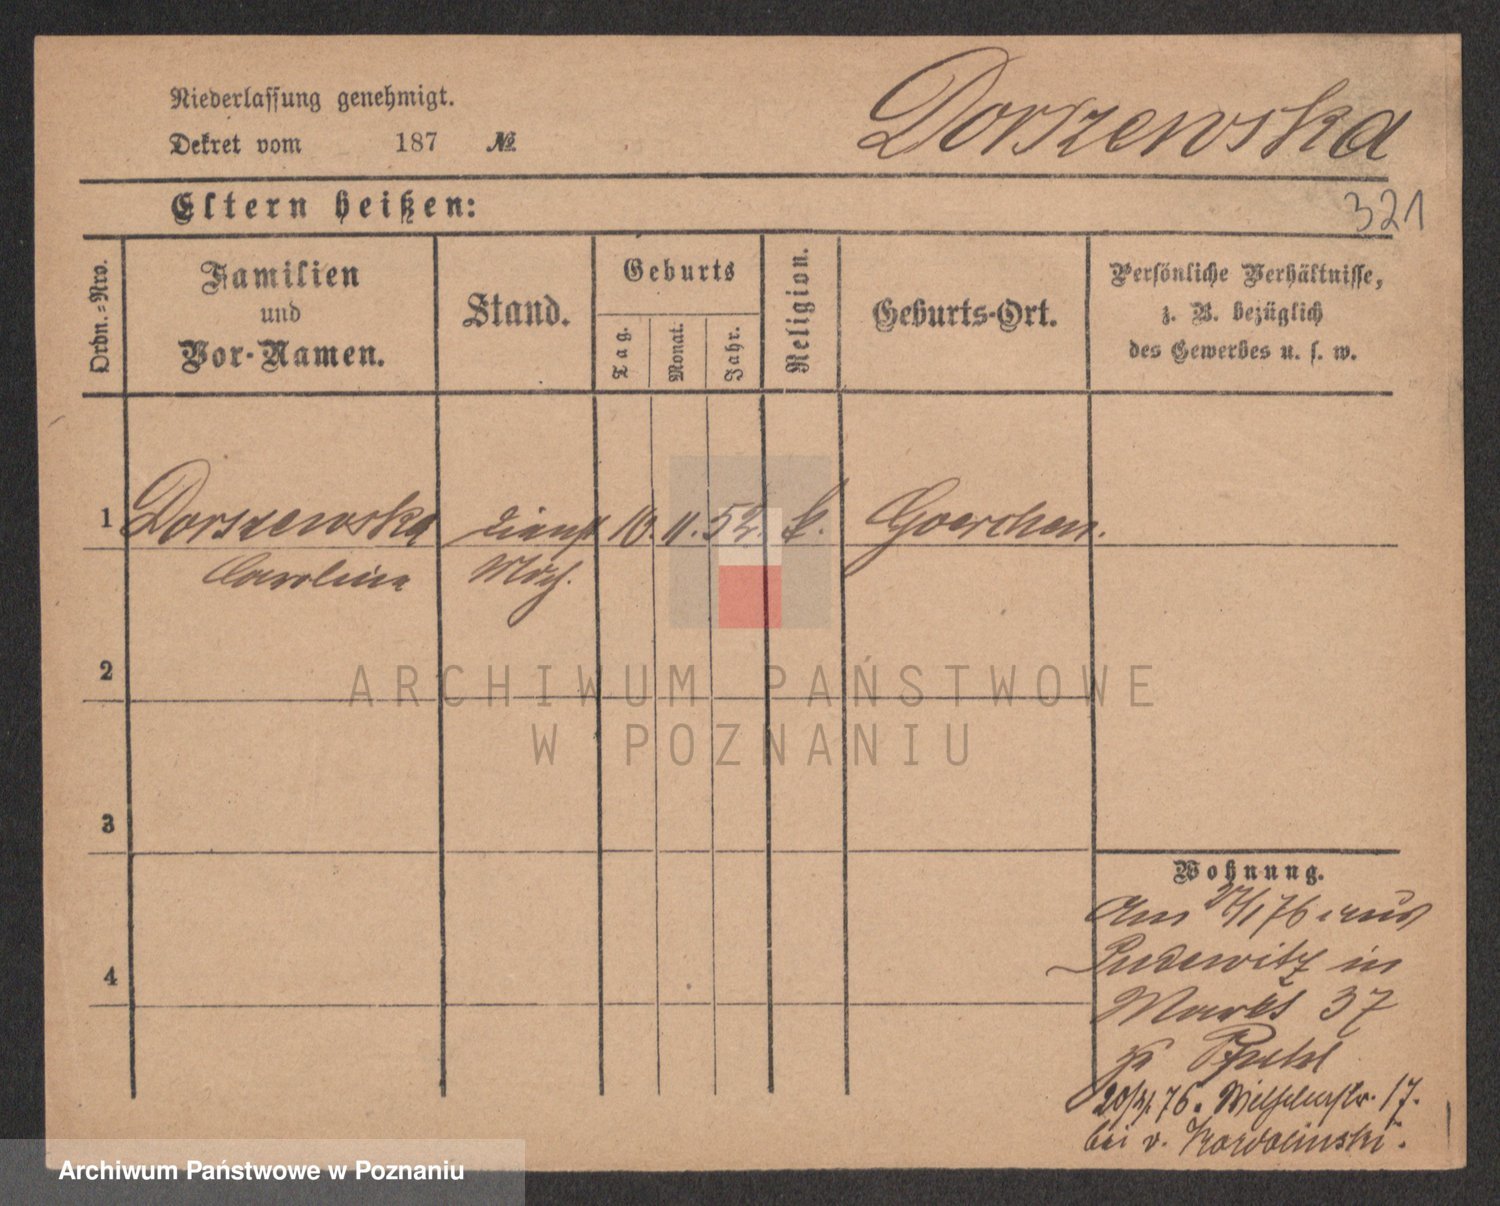 Niederlassung genehmigt.
Dorszewska
Dekret vom 187 №
Eltern heißen:
321
Ordn.-Nro.
Familien und Vor-Namen.
Stand.
Geburts
Tag.
Monat.
Jahr.
Religion.
Geburts-Ort.
Persönliche Verhältnisse,
z. B. bezüglich
des Gewerbes u. s. w.
1 Dorszewska Dienst 10. 11. 52. k. Goerchen.
Caroline Mdch.
2
3
4
Wohnung.
Am 27/1 76 aus
Pudewitz in
Markt 37
76. Wilhelmstr. 17.
bei v.
ARCHIWUM PAŃSTWOWE
W POZNANIU
Archiwum Państwowe w Poznaniu